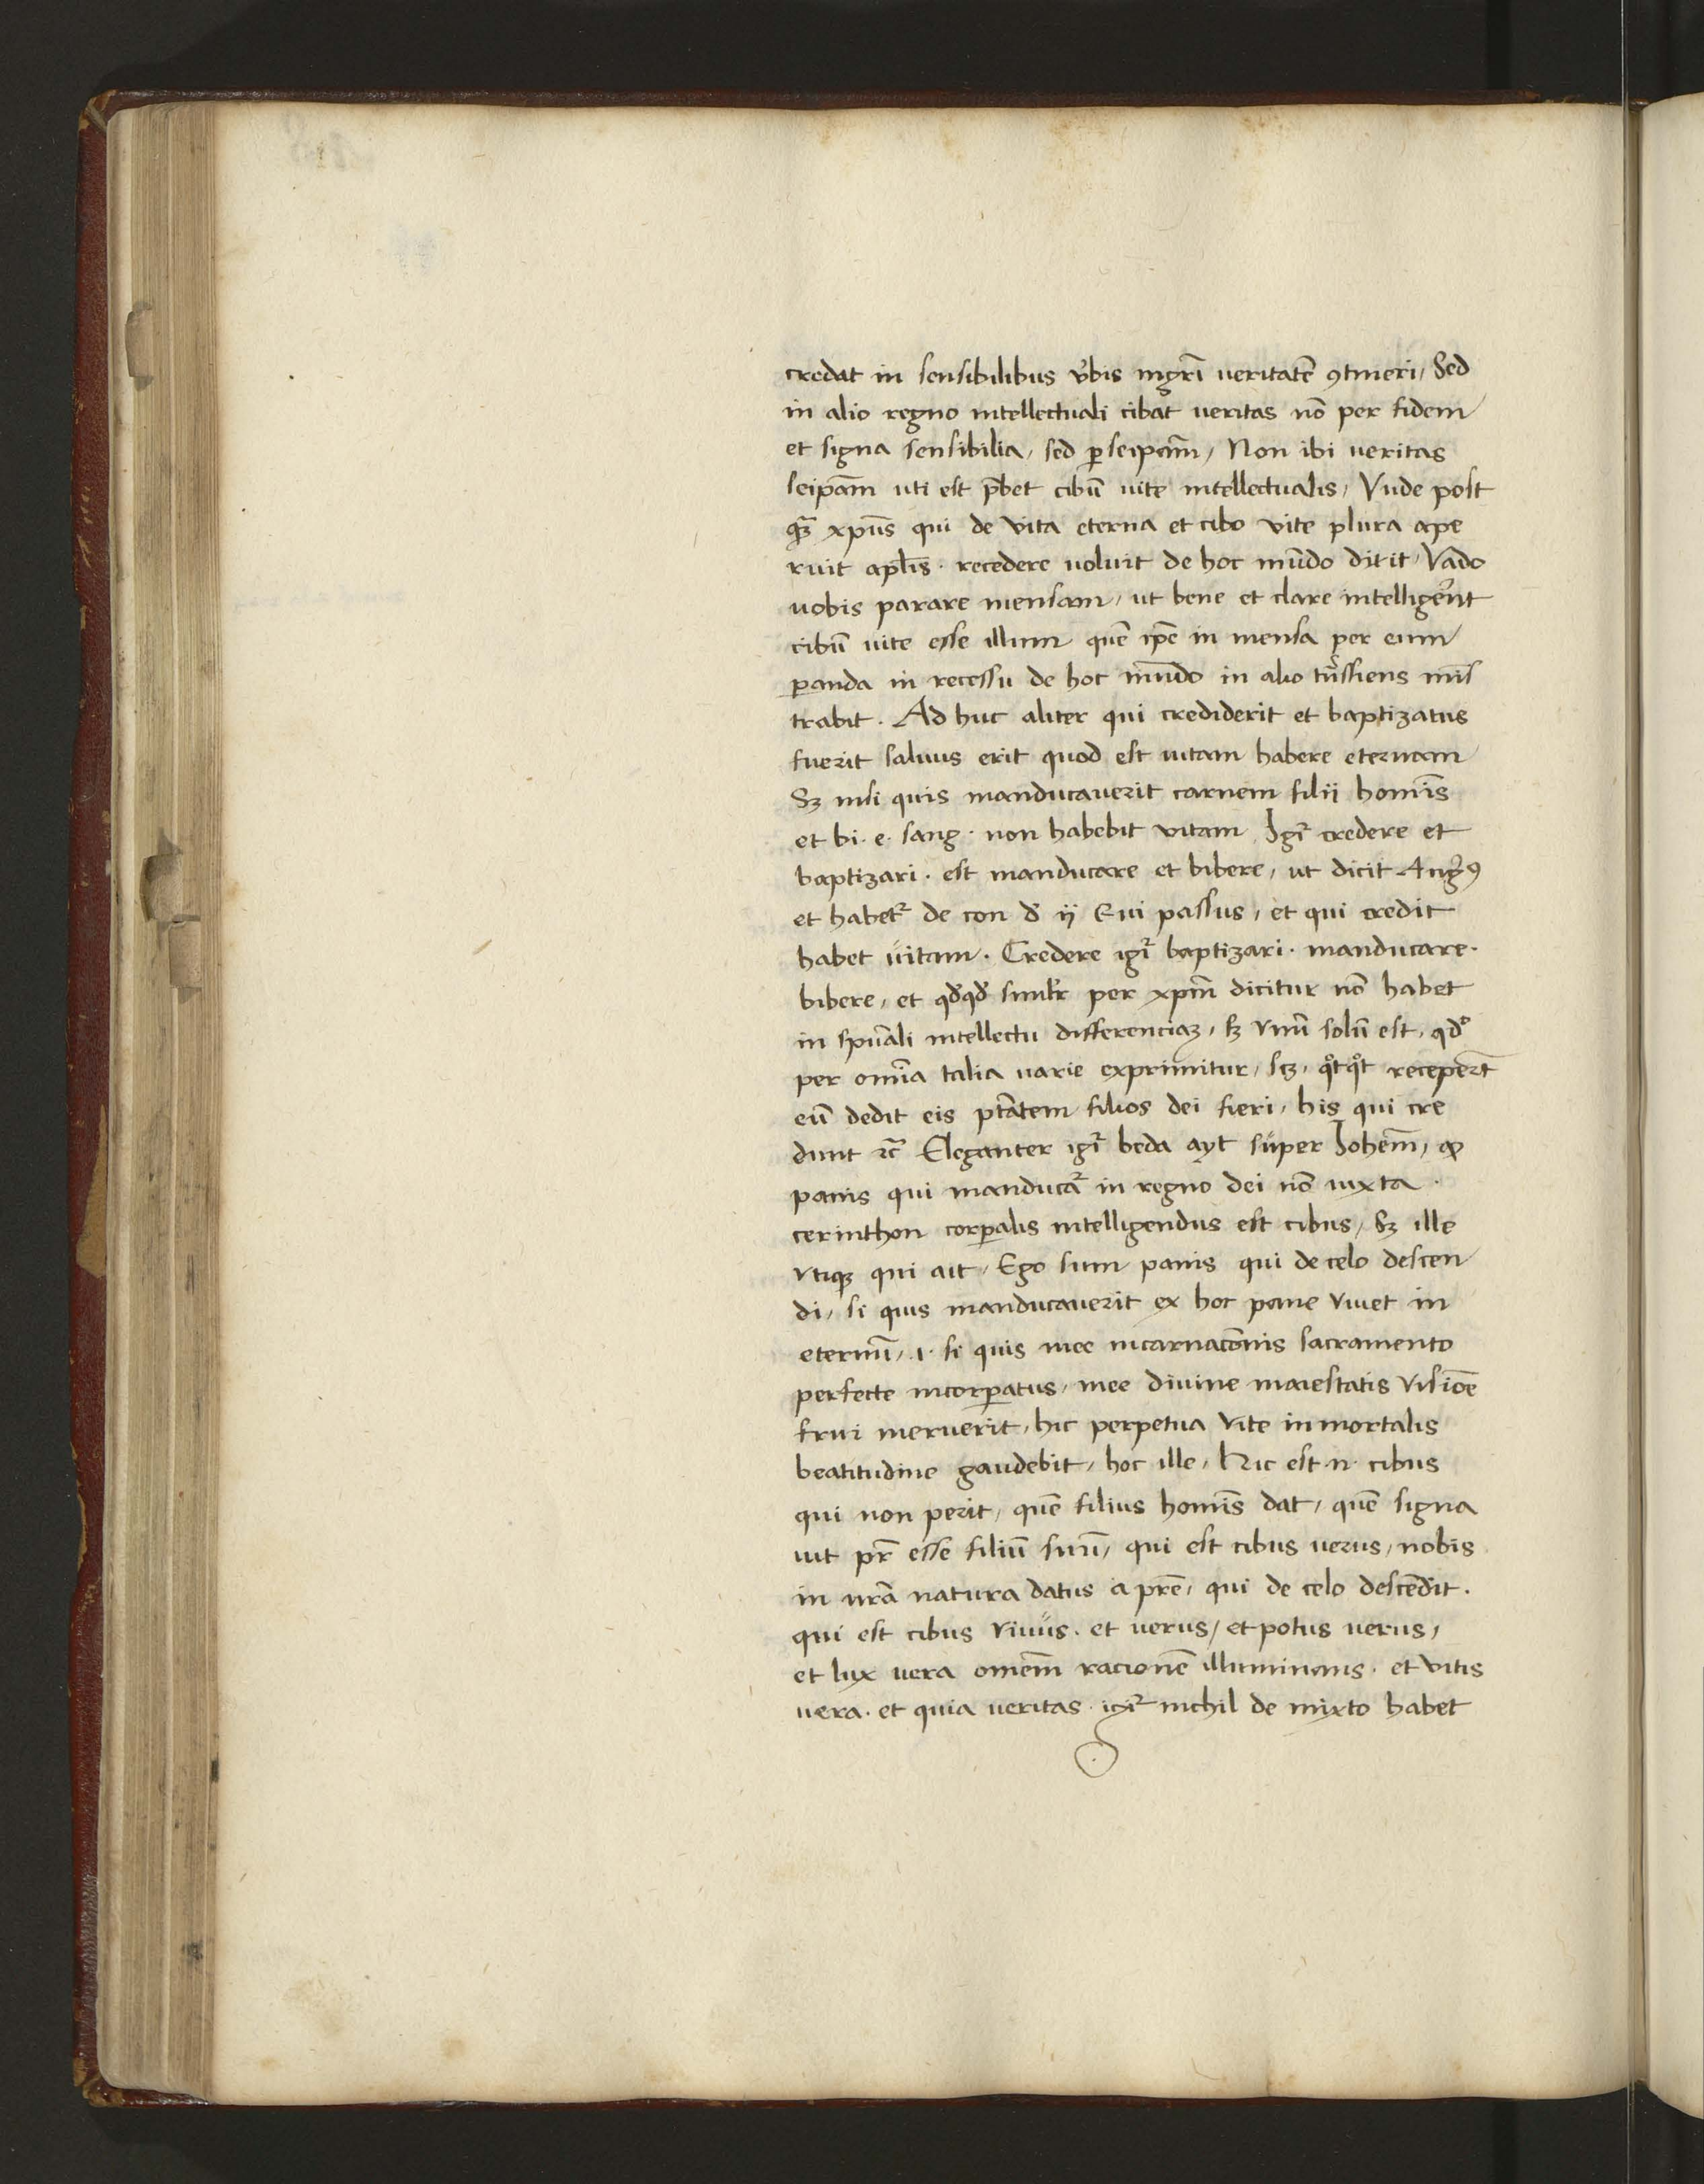 credat in sensibilibus v̓bis mgr̄i veritatē ꝯtineri / Sed
in alio regno intellectuali cibat veritas nō per fidem
et signa sensibilia / sed ꝑ seip̄am / Non ibi veritas
seip̄am uti est p̄bet cibū uite intellectualis / Vnde post
qꝫ̄ xp̄us qui de vita eterna et cibo vite plura ape
ruit apl̄is · recedere uoluit de hoc mūdo dixit / Vado
uobis parare mensam / ut bene et clare intelligerēt
cibū uite esse illum quē ip̄e in mensa per eum
ꝑanda in recessu de hoc mūdo in alio trāssiens mīs
trabit · Ad huc aliter qui crediderit et baptizatus
fuerit saluus erit quod est uitam habere eternam
Sꝫ nisi quis manducauerit carnem filii homīs
et bi · e · sang · non habebit vitam Igr̄ credere et
baptizari · est manducare et bibere / ut dicit Augꝰ
et habet̄ de con d̓ ij Qui passus / et qui credit
habet uitam · Credere igr̄ baptizari · manducare ·
bibere / et qd̓qd̓ similr̄ per xp̄m dicitur nō habet
in sp̄uali intellectu differenciaꝫ / sꝫ vnū solū est / qd̓
per omīa talia varie exprimitur / scꝫ / qͦtqͦt receper̄t
eū dedit eis pt̄atem filios dei fieri / his qui cre
dunt ⁊c̄ Eleganter igr̄ beda ayt super Iohem̄ / ꝙ
panis qui manducat̄ in regno dei nō iuxta ·
cerinthon corꝑalis intelligendus est cibus / Sꝫ ille
vtiqꝫ qui ait / Ego sum panis qui de celo descen
di / si quis manducauerit ex hoc pane viuet in
eternū / .i. si quis mee incarnacōnis sacramento
perfecte incorꝑatus / mee diuine maiestatis visiōe
frui meruerit / hic perpetua vite inmortalis
beatitudine gaudebit / hoc ille / Hic est .n. cibus
qui non perit / quē filius homīs dat / quē signa
uit pr̄ esse filiū suū / qui est cibus uerus / nobis
in nr̄a natura datus a pr̄e / qui de celo descēdit ·
qui est cibus viuus · et uerus / et potus uerus /
et lux uera omem̄ racionē illuminans · et vitis
uera · et quia veritas · igr̄ nichil de mixto habet